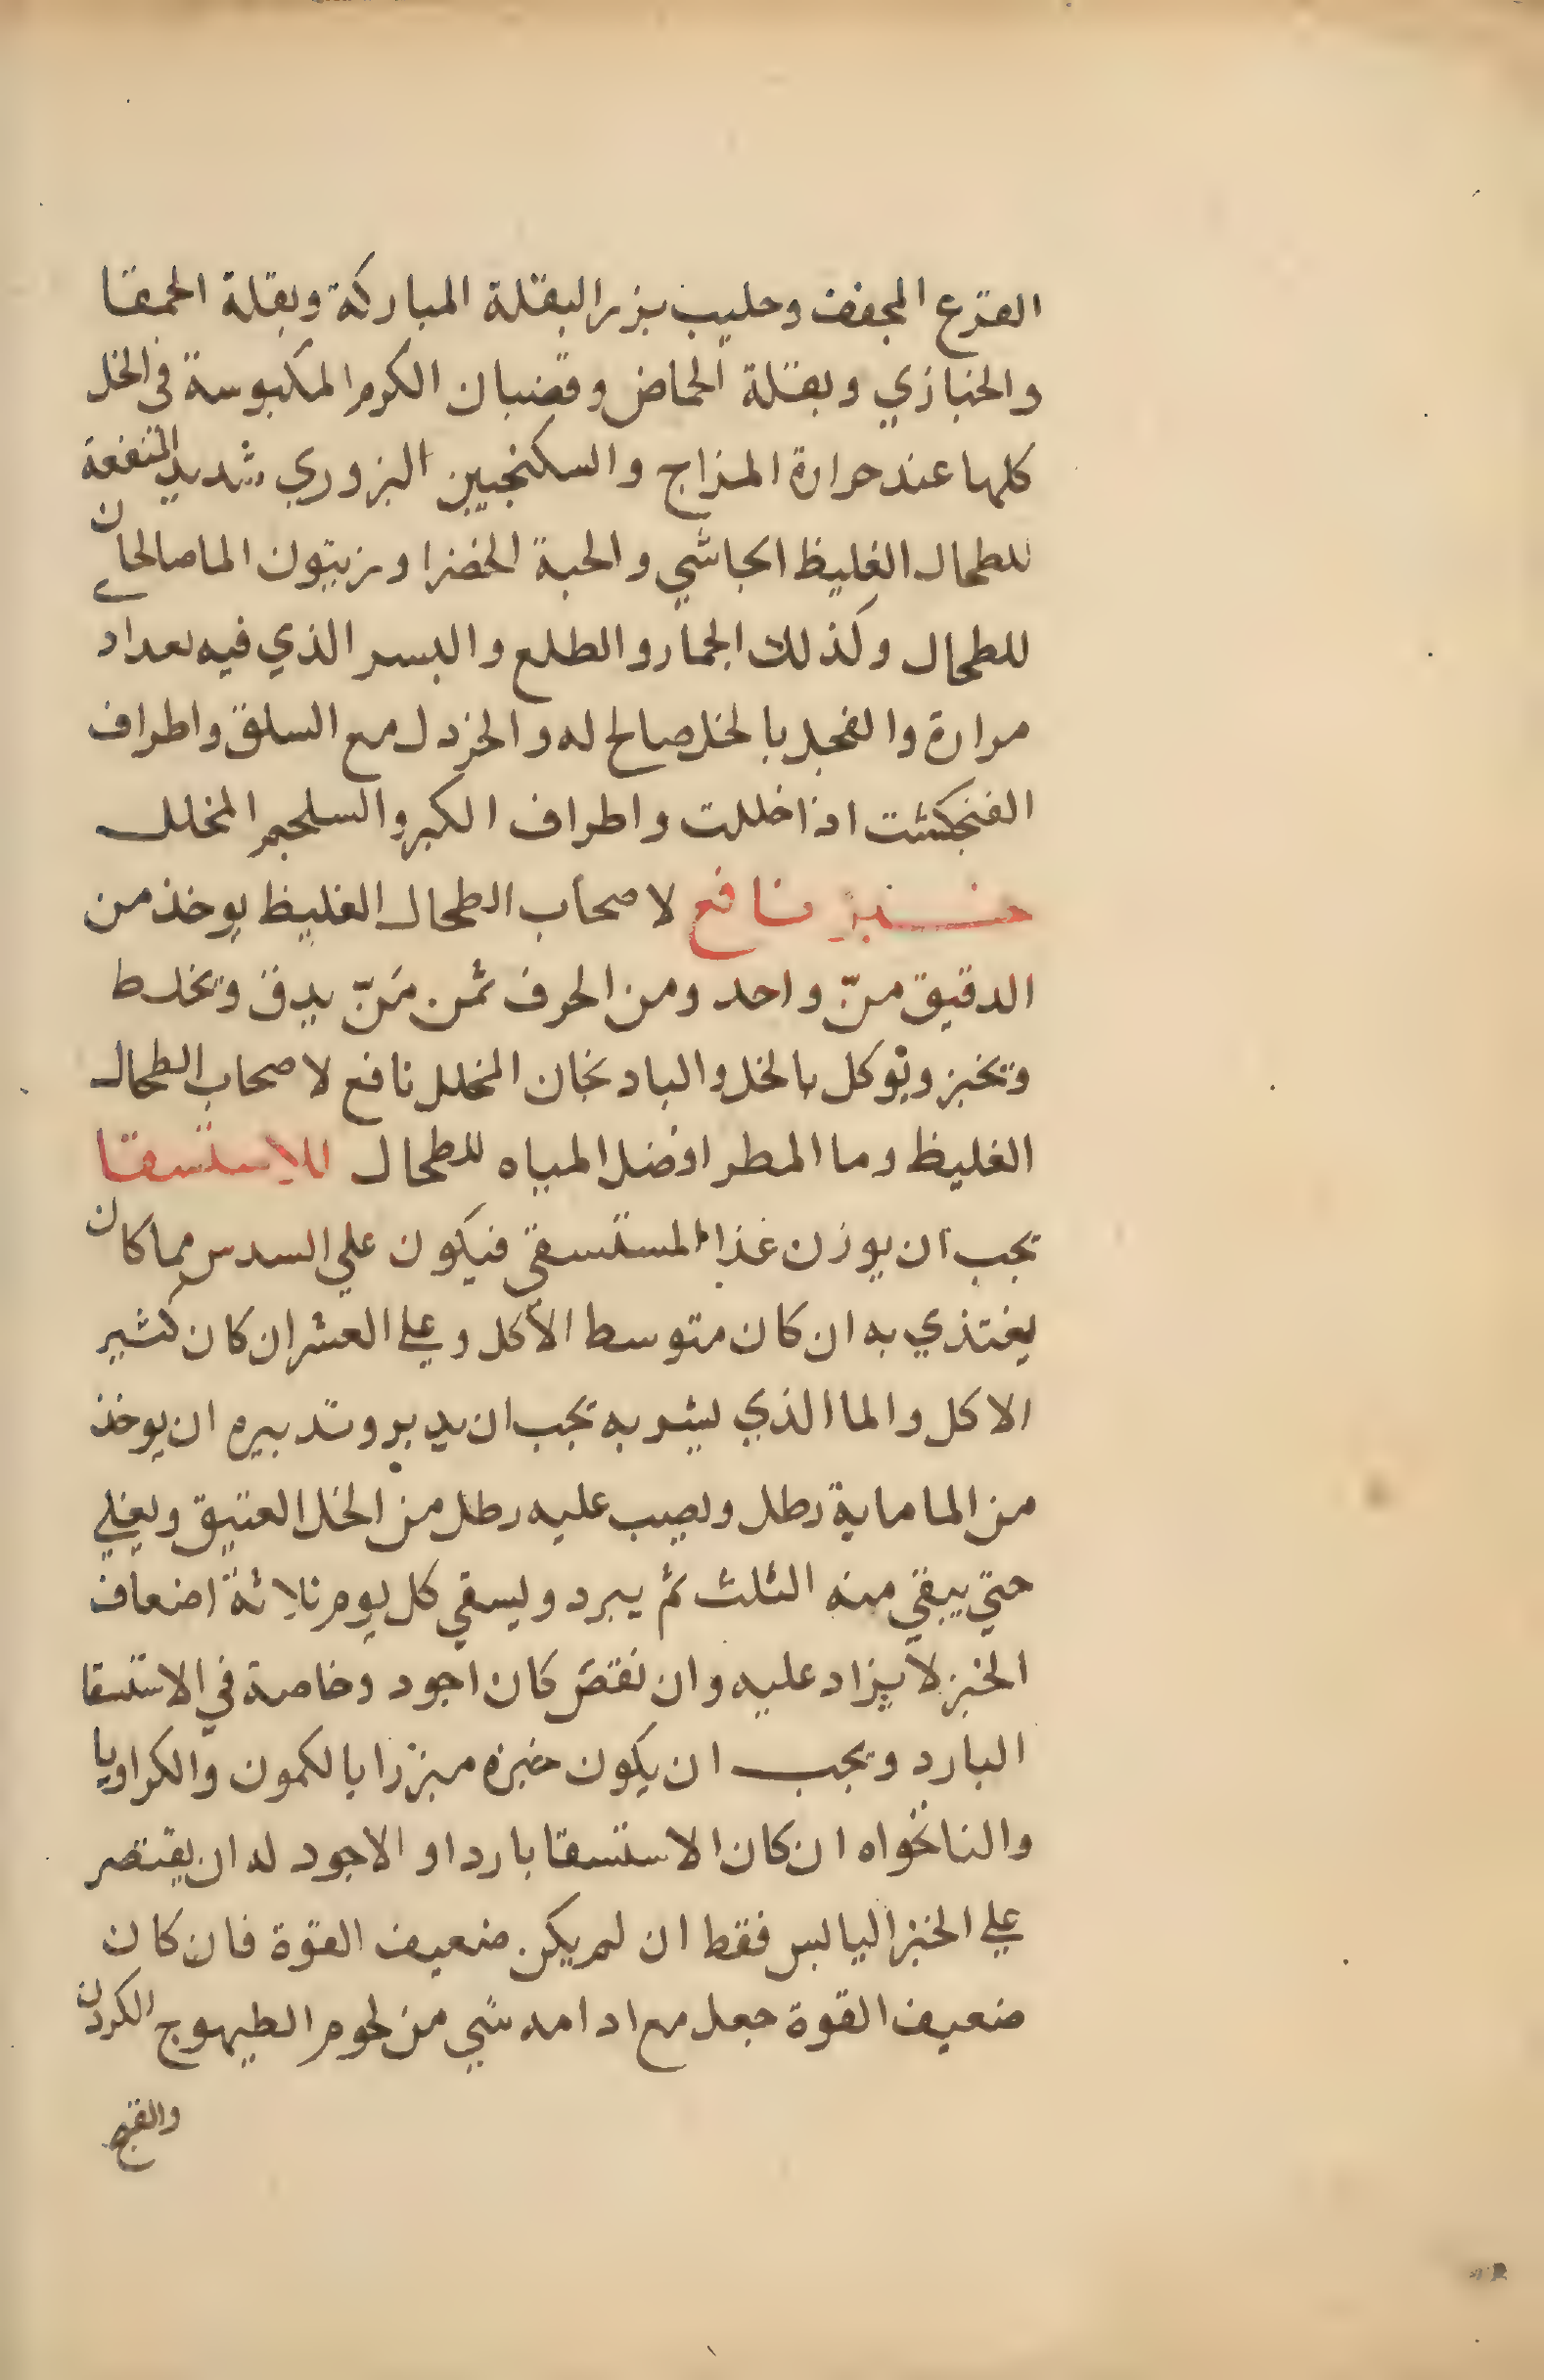 القرع المجفف وحليب بزر البقلة المباركة وبقلة الحمقا
والخبازي وبقلة الحماض وقضبان الكرم المكبوسة في الخل
كلها عند حرارة المزاج والسكنجبين البزوري شديد المنفعة
للطحال الغليظ الجاشي والحبة الخضرا وزيتون الما صالحان
للطحال وكذلك الجمار والطلع والبسر الذي فيه بعد اد
مرارة والفجل بالخل صالح له والخردل مع السلق واطراف
الفنجكشت اذا خللت واطراف الكبر والسلجم المخلل
خبز نافع لاصحاب الطحال الغليظ يوخذ من
الدقيق منّ واحد ومن الحرف ثمن منّ يدق ويخلط
ويخبز ويوكل بالخل والبادنجان المخلل نافع لاصحاب الطحال
الغليظ وما المطر افضل المياه للطحال للاستسقا
يجب ان يوزن غذا المستسقي فيكون علي السدس مما كان
يغتذي به ان كان متوسط الاكل وعلي العشر ان كان كثير
الاكل والما الذي يشربه يجب ان يدبر وتدبيره ان يوخذ
من الما ماية رطل ويصب عليه رطل من الخل العتيق ويغلي
حتي يبقي منه الثلث ثم يبرد ويسقي كل يوم ثلاثة اضعاف
الخبز لا يزاد عليه وان نقص كان اجود وخاصة في الاستسقا
البارد ويجب ان يكون خبزه مبزرا بالكمون والكراويا
والنانخواه ان كان الاستسقا باردا و الاجود له ان يقتصر
علي الخبز اليابس فقط ان لم يكن ضعيف القوة فان كان
ضعيف القوة جعل مع ادامه شي من لحوم الطيهوج الكردن
والقبج